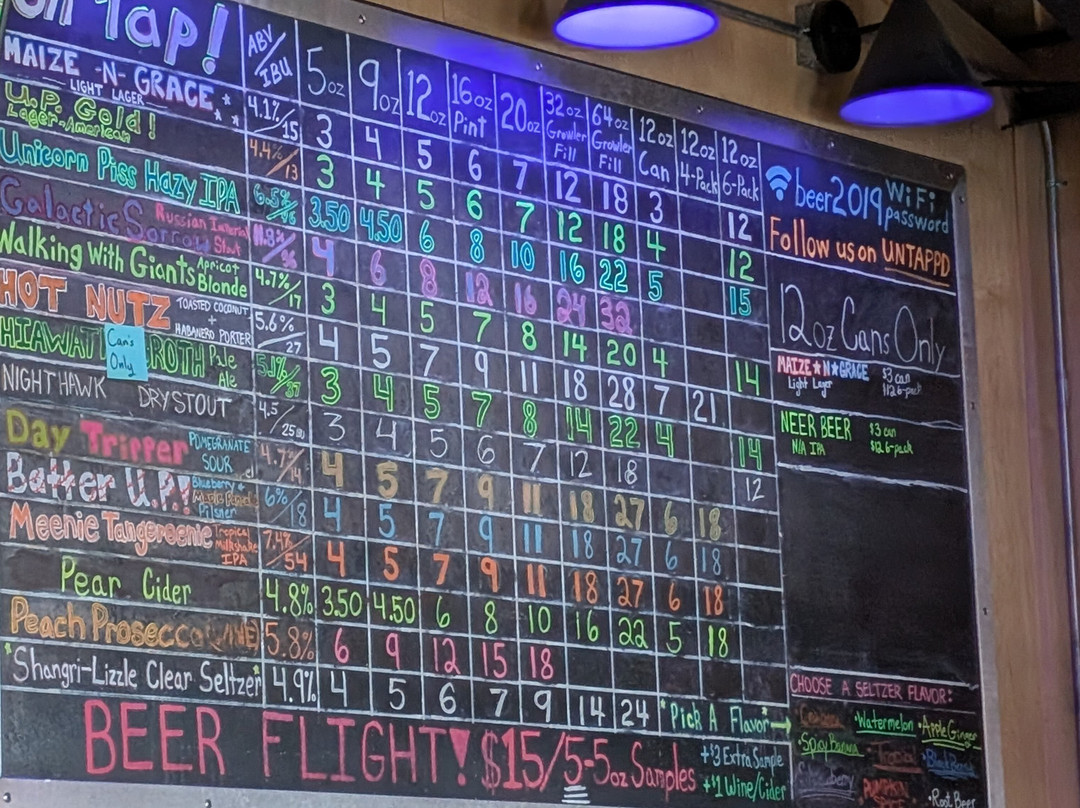 On Tap!
ABV/IBU 5oz 9oz 12oz 16oz Pint 20oz 32oz Growler Fill 64oz Growler Fill 12oz Can 12oz 4-Pack 12oz 6-Pack
MAIZE -N- GRACE LIGHT LAGER 4.1%/15 3 4 5 6 7 12 18 3 12
U.P. Gold! Lager-American 4.4%/13 3 4 5 6 7 12 18 4 12
Unicorn Piss Hazy IPA 6.5%/ 3.50 4.50 6 8 10 16 22 5 15
Galactic Sorrow Russian Imperial Stout 4 6 8 12 16 24 32
Walking With Giants Apricot Blonde 4.7%/17 3 4 5 7 8 14 20 4 14
HOT NUTZ TOASTED COCONUT + HABANERO PORTER 5.6%/27 4 5 7 9 11 18 28 7 21
HIAWAT
Can's
Only
ROTH Pale Ale 5.1%/37 3 4 5 7 8 14 22 4 14
NIGHTHAWK DRY STOUT 4.5/25 3 4 5 6 7 12 18 12
Day Tripper POMEGRANATE SOUR 4.7%/ 4 5 7 9 11 18 27 6 18
Batter U.P.! Blueberry & Maple Pilsner 6%/18 4 5 7 9 11 18 27 6 18
Meenie Tangereenie Tropical Milkshake IPA 7.4%/54 4 5 7 9 11 18 27 6 18
Pear Cider 4.8% 3.50 4.50 6 8 10 16 22 5 18
Peach Prosecco (WINE) 5.8% 6 9 12 15 18
*Shangri-Lizzle Clear Seltzer* 4.9% 4 5 6 7 9 14 24 *Pick A Flavor*→
BEER FLIGHT! $15/5-5oz Samples
+$3 Extra Sample
+$1 Wine/Cider
beer2019 WiFi password
Follow us on UNTAPPD
12oz Cans Only
MAIZE★N★GRACE $3 can
Light Lager $12 6-pack
NEER BEER $3 can
N/A IPA $12 6-pack
CHOOSE A SELTZER FLAVOR:
•Watermelon •Apple Ginger
•Spicy Banana •Tropical
•Root Beer